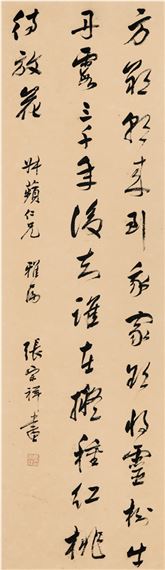 方朔朝來到我家欲將靈樹出
丹霞三千年後知誰在擬種紅桃
待放花
叔蘋仁兄 雅屬 張宗祥書